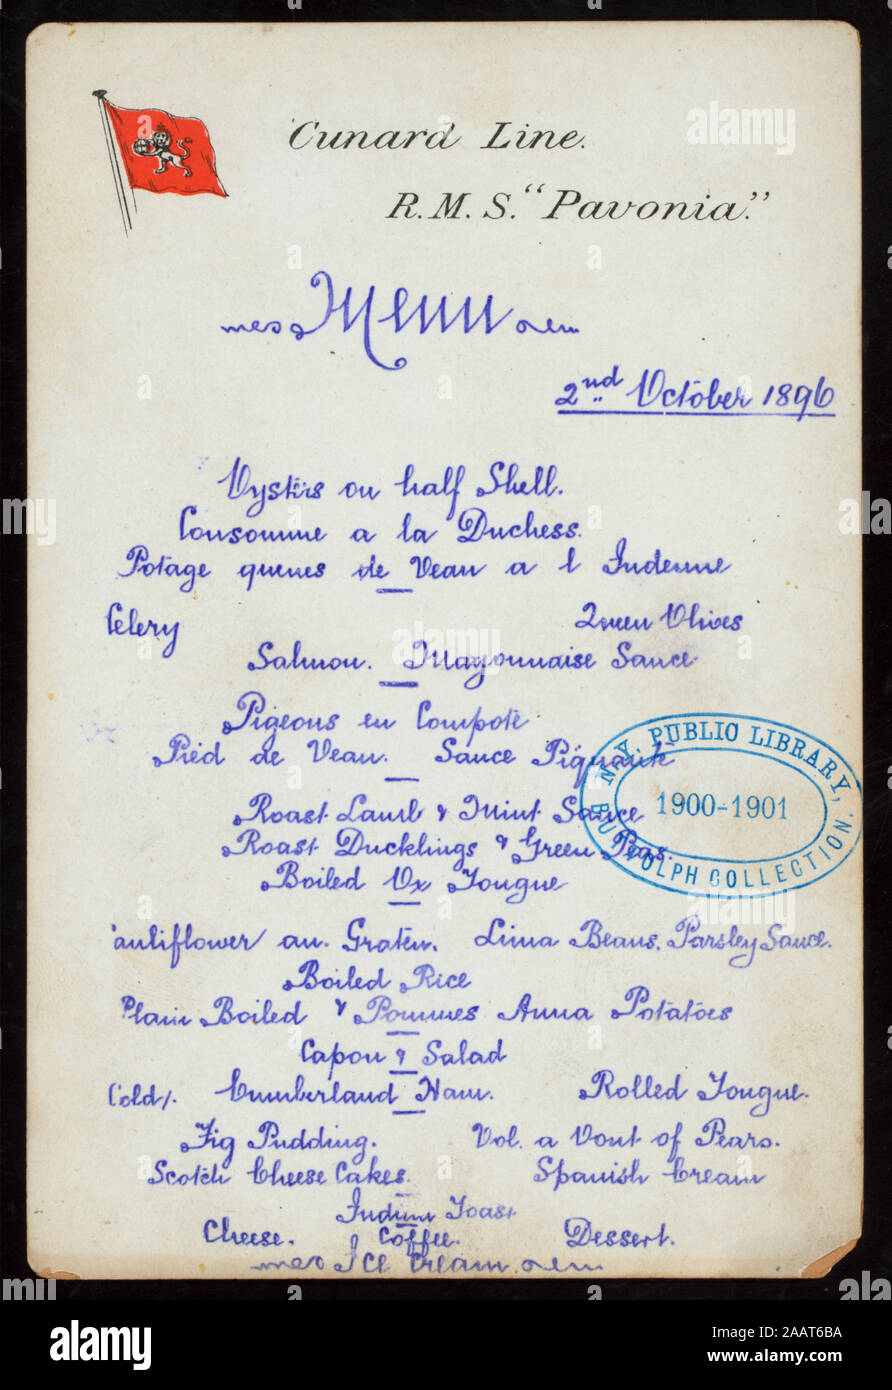 Cunard Line.
R.M.S. "Pavonia."
Menu
2nd October 1896
Oysters on half Shell.
Consomme a la Duchess.
Potage queues de Veau a l Indenne
Celery Queen Olives
Salmon. Mayonnaise Sauce
Pigeons en Compote
Pied de Veau. Sauce Piquante
Roast Lamb & Mint Sauce
Roast Ducklings & Green Peas.
Boiled Ox Tongue
N.Y. PUBLIC LIBRARY,
1900-1901
BUTTOLPH COLLECTION.
auliflower au. Graten. Lima Beans. Parsley Sauce.
Boiled Rice
Plain Boiled & Pommes Anna Potatoes
Capon & Salad
Cold/. Cumberland Ham. Rolled Tongue.
Fig Pudding. Vol. a Vont of Pears.
Scotch Cheese Cakes. Spanish Cream
Toast
Cheese. Coffee. Dessert.
Ice Cream
alamy
Image ID: 2AAT6BA
www.alamy.com